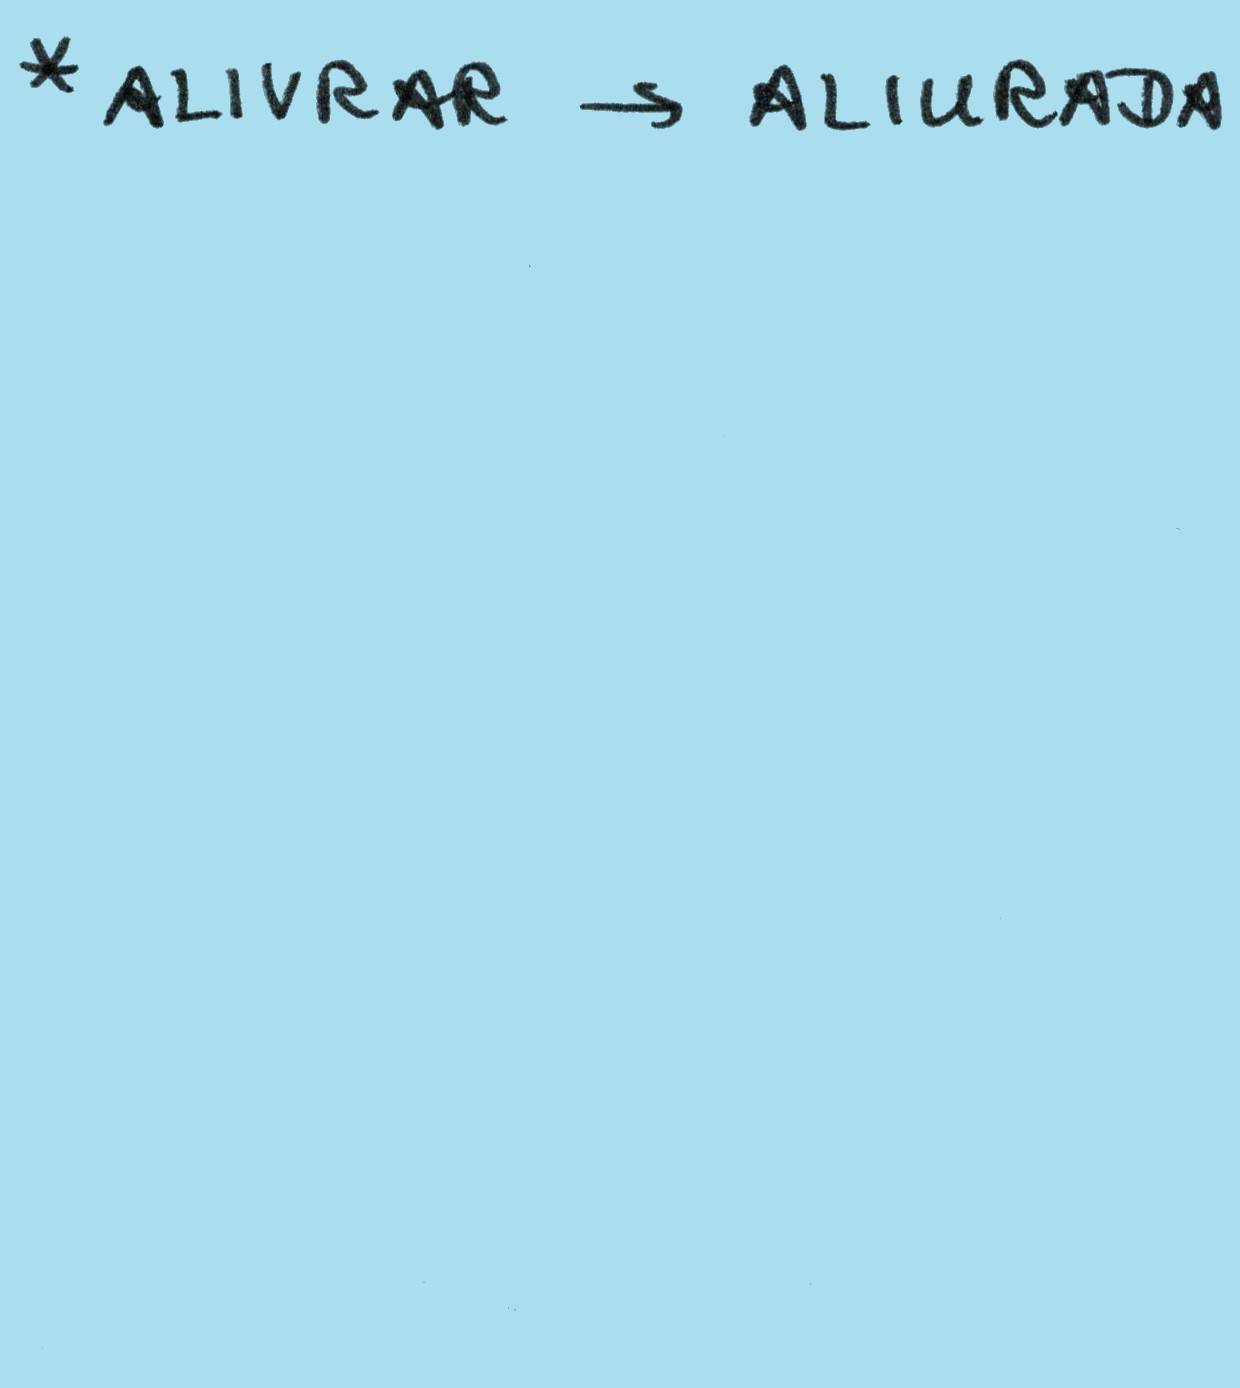 * ALIVRAR → ALIURADA